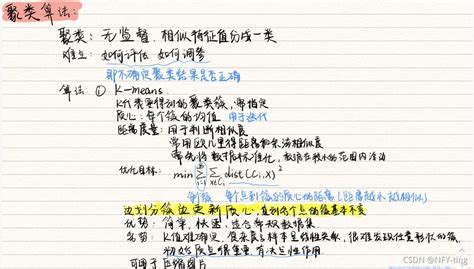 聚类算法:
聚类: 无监督. 相似特征值分成一类
难点: 如何评估 如何调参
即不确定聚类结果是否正确
算法: ① K-means.
K代表要得到的聚类簇,需指定
质心: 每个簇的均值 用于迭代
距离度量: 用于判断相似度
常用欧几里得距离和余弦相似度
常先将数据标准化,数据在较小的范围内活动
优化目标: min Σ Σ dist(Ci,x)²
每个点到簇的质心的距离(距离越小越相似)
边划分簇边更新质心,直到各个点的簇基本不变
优势: 简单,快速,适合常规数据集
劣势: K值难确定,复杂度与样本呈线性关系,很难发现任意形状的簇,
初始质点很重要 有决定性作用
可用于压缩图片
CSDN @NFY-ting